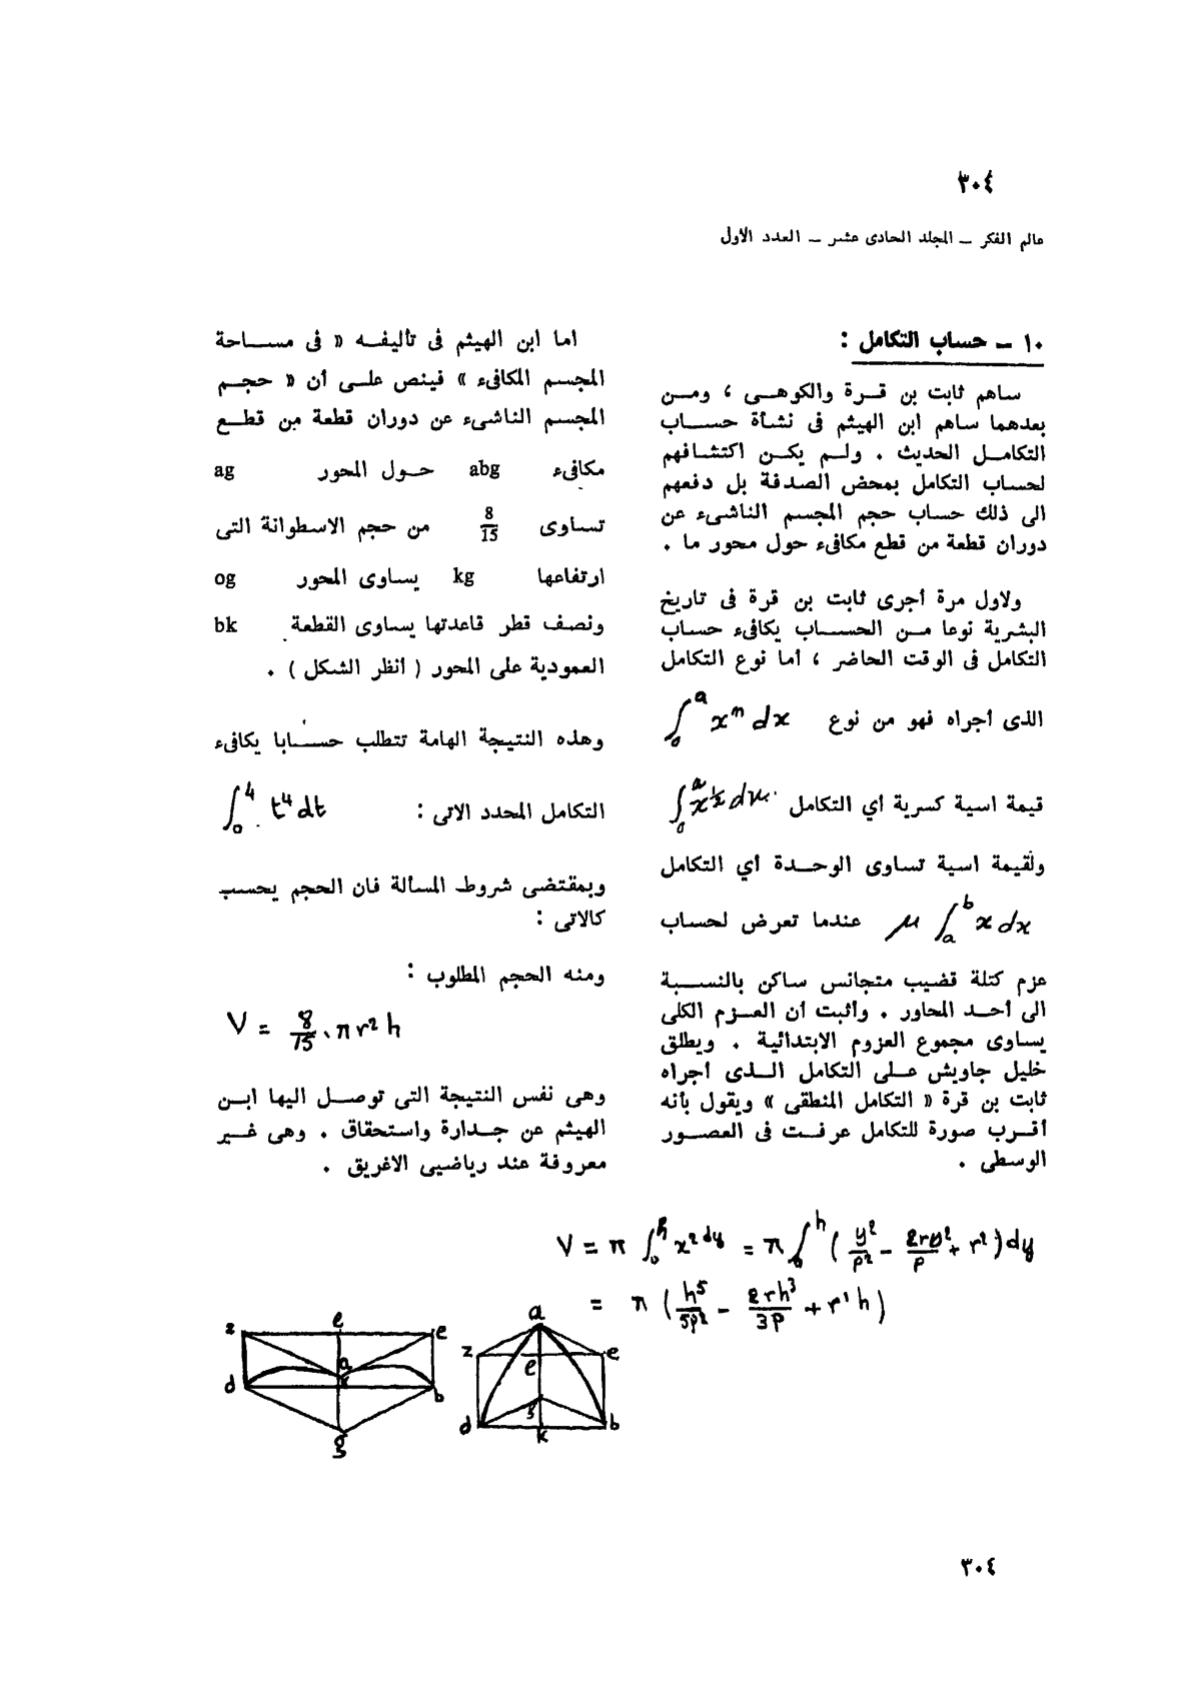 ٣٠٤
عالم الفكر – المجلد الحادى عشر – العدد الأول
١٠ – حساب التكامل :
ساهم ثابت بن قرة والكوهى ، ومن
بعدهما ساهم ابن الهيثم فى نشأة حساب
التكامل الحديث . ولم يكن اكتشافهم
لحساب التكامل بمحض الصدفة بل دفعهم
الى ذلك حساب حجم المجسم الناشىء عن
دوران قطعة من قطع مكافىء حول محور ما .
ولاول مرة أجرى ثابت بن قرة فى تاريخ
البشرية نوعا من الحساب يكافىء حساب
التكامل فى الوقت الحاضر ، أما نوع التكامل
الذى أجراه فهو من نوع ∫₀ᵃ xⁿ dx
قيمة اسية كسرية أي التكامل ∫₀ᵃ x^½ dx
ولقيمة اسية تساوى الوحدة أي التكامل
μ ∫ₐᵇ x dx عندما تعرض لحساب
عزم كتلة قضيب متجانس ساكن بالنسبة
الى أحد المحاور . وأثبت أن العزم الكلى
يساوى مجموع العزوم الابتدائية . ويطلق
خليل جاويش على التكامل الذى أجراه
ثابت بن قرة « التكامل المنطقى » ويقول بأنه
أقرب صورة للتكامل عرفت فى العصور
الوسطى .
اما ابن الهيثم فى تأليفه « فى مساحة
المجسم المكافىء » فينص على أن « حجم
المجسم الناشىء عن دوران قطعة من قطع
مكافىء abg حول المحور ag
تساوى 8/15 من حجم الاسطوانة التى
ارتفاعها kg يساوى المحور og
ونصف قطر قاعدتها يساوى القطعة bk
العمودية على المحور ( أنظر الشكل ) .
وهذه النتيجة الهامة تتطلب حسابا يكافىء
التكامل المحدد الاتى : ∫₀⁴ t⁴ dt
وبمقتضى شروط المسألة فان الحجم يحسب
كالاتى :
ومنه الحجم المطلوب :
V = 8/15 . π r² h
وهى نفس النتيجة التى توصل اليها ابن
الهيثم عن جدارة واستحقاق . وهى غير
معروفة عند رياضيى الاغريق .
V = π ∫₀ʰ x² dy = π ∫₀ʰ ( y²/p² – 2ry²/p + r² ) dy
= π ( h⁵/5p² – 2rh³/3p + r¹h )
z e e
a
d b
g
a
z e e
d b
k
٣٠٤